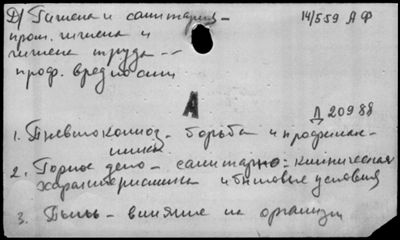 Д) Гигиена и санитария -
14/559 АФ
пром. гигиена и
гигиена труда --
проф. вредности
А
Д 20988
1. Пневмокониоз - борьба и профилак-
тика
2. Горное дело - санитарно-клиническая
характеристика и бытовые условия
3. Пыль - влияние на организм